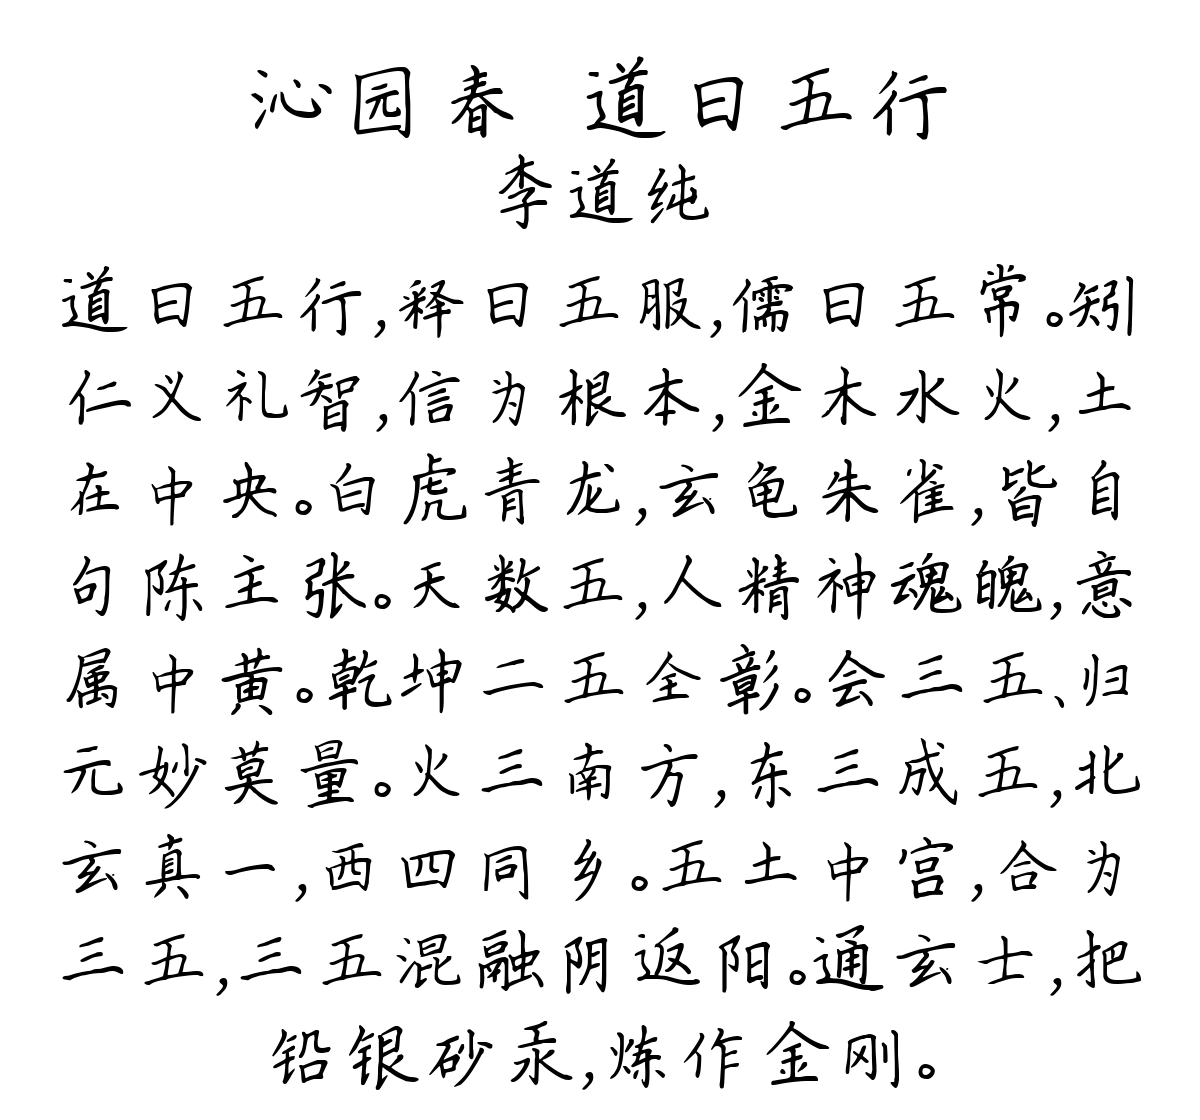 沁园春 道曰五行
李道纯
道曰五行,释曰五服,儒曰五常。矧
仁义礼智,信为根本,金木水火,土
在中央。白虎青龙,玄龟朱雀,皆自
句陈主张。天数五,人精神魂魄,意
属中黄。乾坤二五全彰。会三五、归
元妙莫量。火三南方,东三成五,北
玄真一,西四同乡。五土中宫,合为
三五,三五混融阴返阳。通玄士,把
铅银砂汞,炼作金刚。